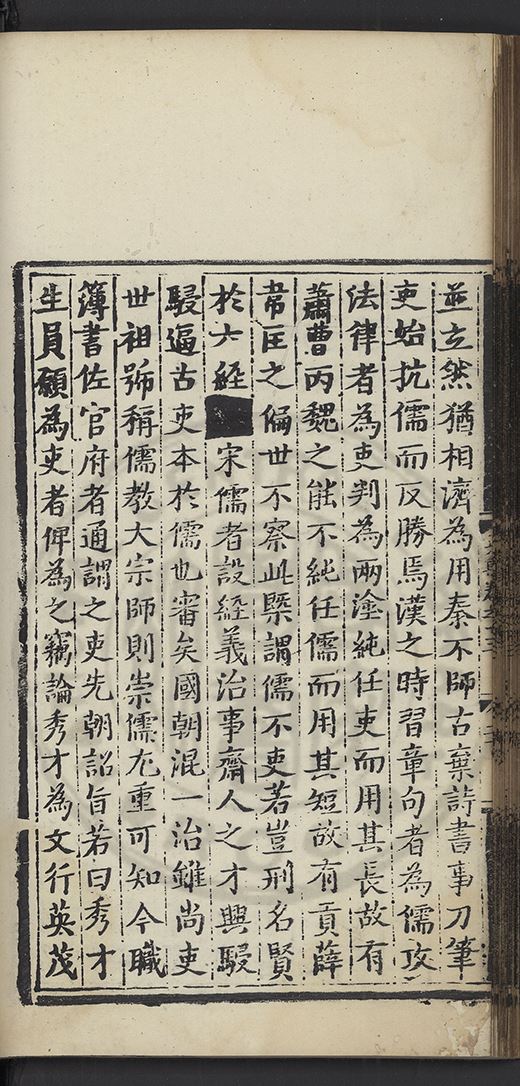 並立然猶相濟為用秦不師古棄詩書事刀筆
吏始抗儒而反勝焉漢之時習章句者為儒攻
法律者為吏判為兩塗純任吏而用其長故有
蕭曹丙魏之能不純任儒而用其短故有貢薛
常匡之偏世不察此槩謂儒不吏若豈刑名賢
於六經宋儒者設經義治事齋人之才興駸
駸逼古吏本於儒也審矣國朝混一治雖尚吏
世祖號稱儒教大宗師則崇儒尤重可知今職
簿書佐官府者通謂之吏先朝詔旨若曰秀才
生員願為吏者俾為之竊論秀才為文行英茂